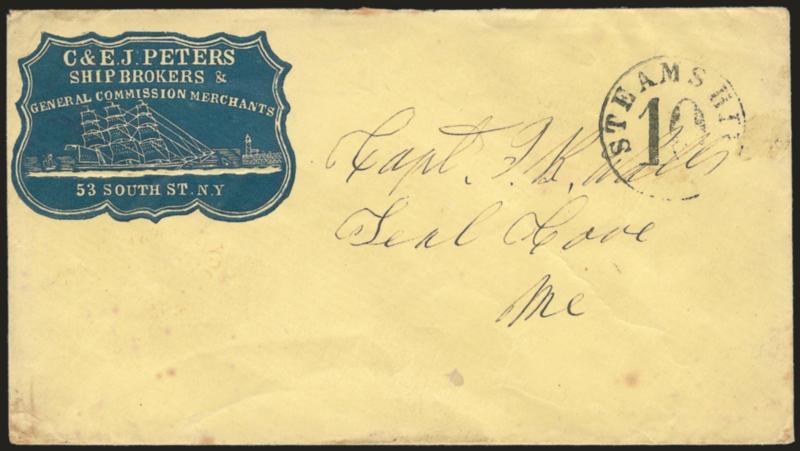 C & E.J. PETERS
SHIP BROKERS &
GENERAL COMMISSION MERCHANTS
53 SOUTH ST. N.Y
STEAMSHIP
10
Capt.
Seal Cove
Me